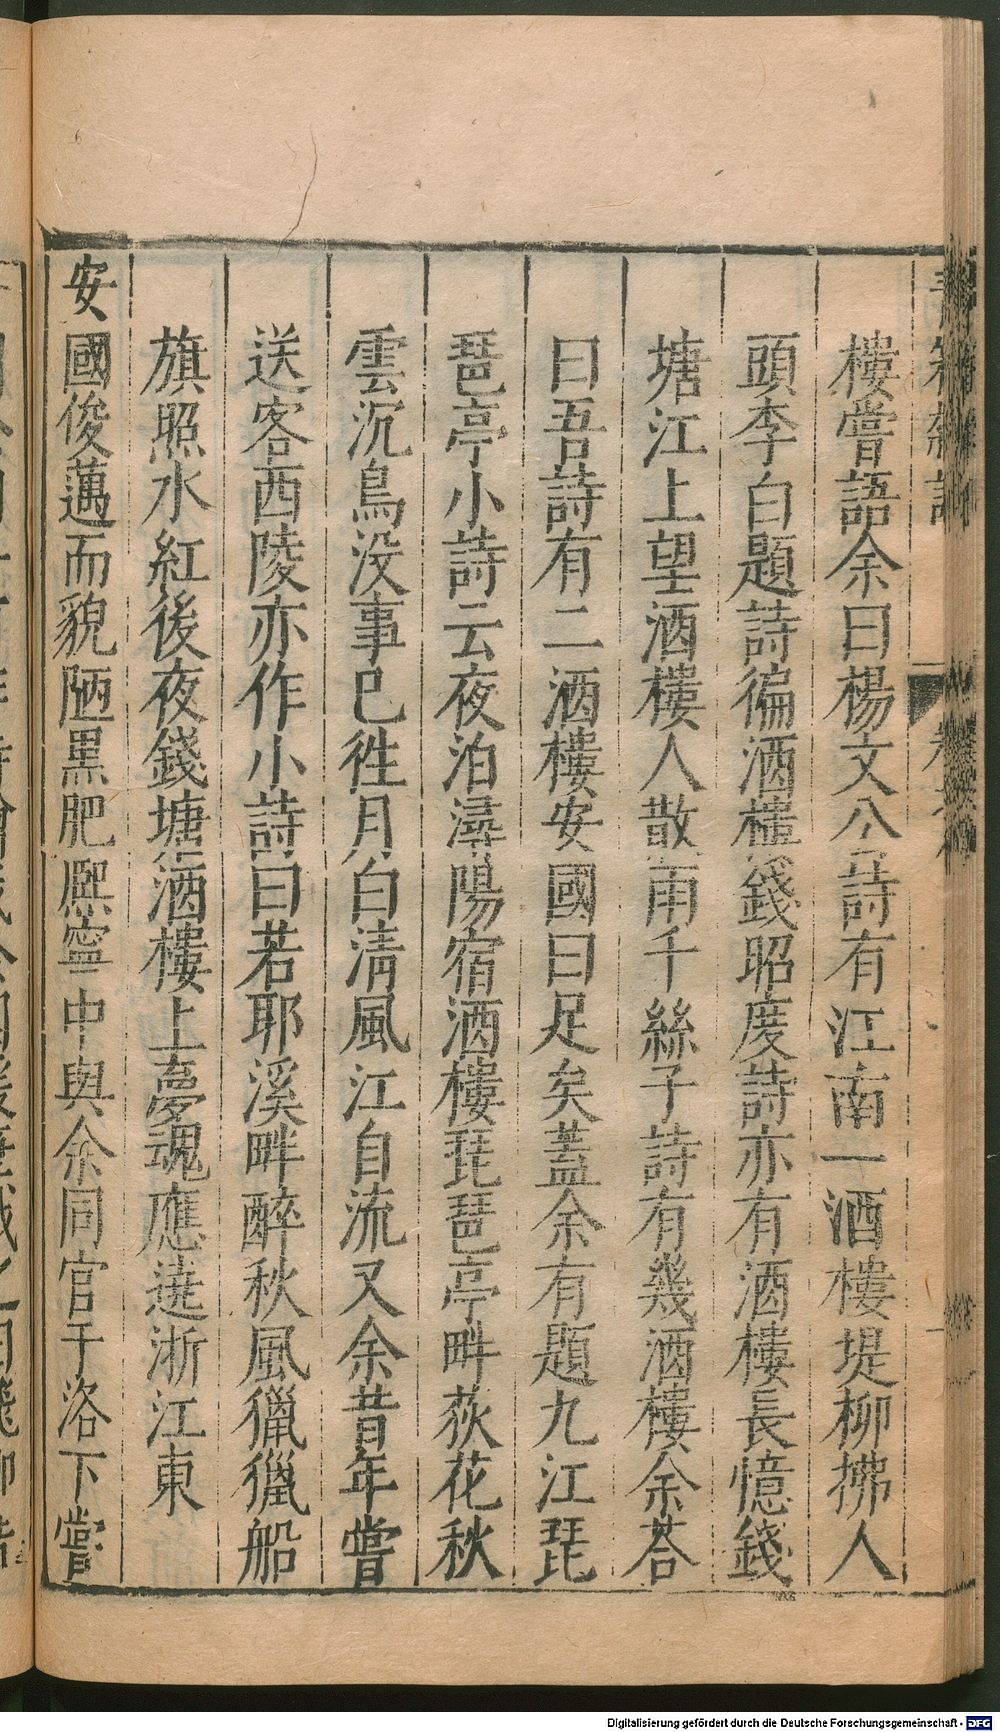 樓嘗語余曰楊文公詩有江南一酒樓堤柳拂人
頭李白題詩徧酒樓錢昭度詩亦有酒樓長憶錢
塘江上望酒樓人散雨千絲子詩有幾酒樓余荅
曰吾詩有二酒樓安國曰足矣蓋余有題九江琵
琶亭小詩云夜泊潯陽宿酒樓琵琶亭畔荻花秋
雲沉鳥没事已徃月白清風江自流又余昔年嘗
送客西陵亦作小詩曰若耶溪畔醉秋風獵獵船
旗照水紅後夜錢塘酒樓上夢魂應遶浙江東
安國俊邁而貌陋黒肥熈寧中與余同官于洛下嘗
Digitalisierung gefördert durch die Deutsche Forschungsgemeinschaft - DFG